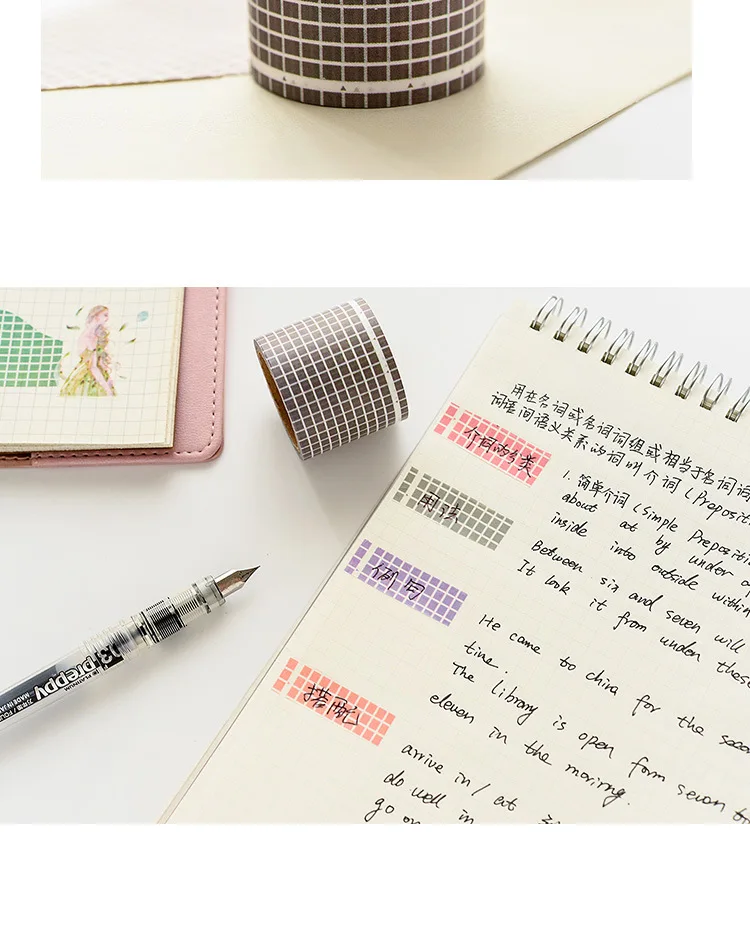 用在名词或名词词组或相当于名词词
词语间语义关系的词叫介词(Preposit
介词的分类
1. 简单介词(Simple Prepositi
about at by under o
inside into outside within
用法
Between six and seven will
It look it from under these
例句
He came to china for the seco
time.
The library is open form seven to
eleven in the morirng.
搭配
arrive in / at
do well in
go on
03 preppy
PLATINUM
MADE IN JA